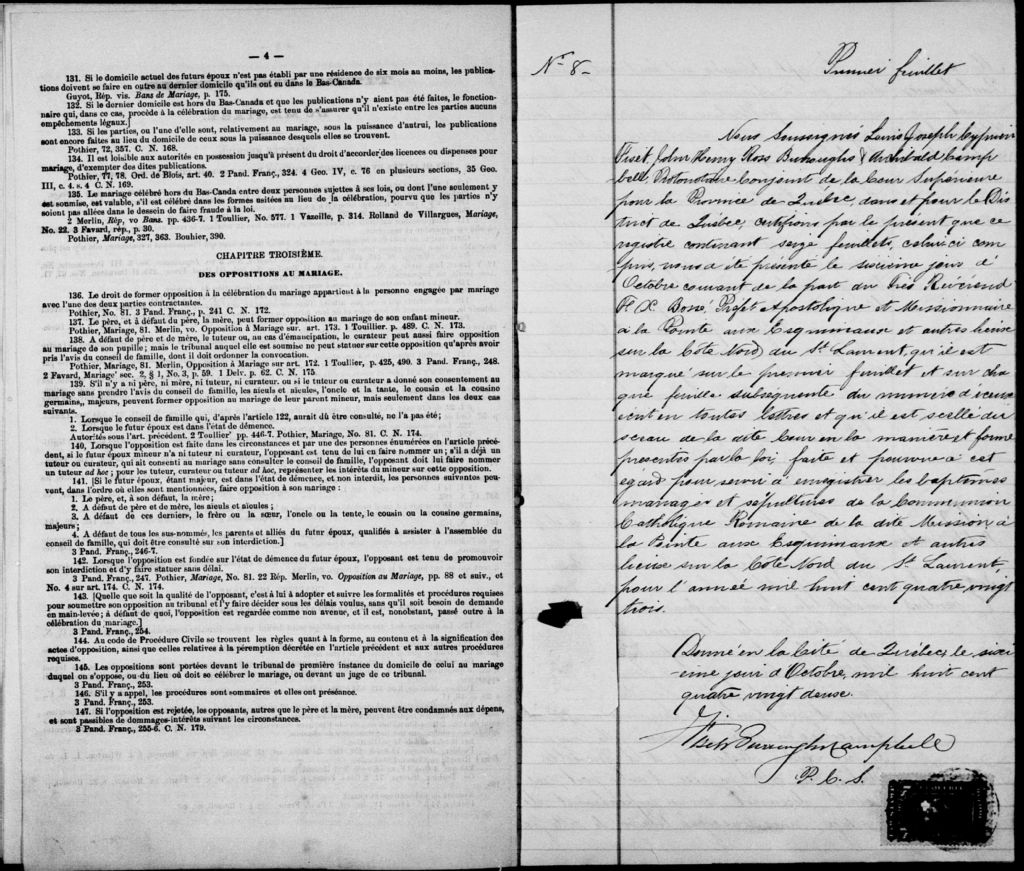 — 4 —
131. Si le domicile actuel des futurs époux n'est pas établi par une résidence de six mois au moins, les publica-
tions doivent se faire en outre au dernier domicile qu'ils ont eu dans le Bas-Canada.
Guyot, Rép. vis. Bans de Mariage, p. 175.
132. Si le dernier domicile est hors du Bas-Canada et que les publications n'y aient pas été faites, le fonction-
naire qui, dans ce cas, procède à la célébration du mariage, est tenu de s'assurer qu'il n'existe entre les parties aucuns
empêchements légaux.]
133. Si les parties, ou l'une d'elle sont, relativement au mariage, sous la puissance d'autrui, les publications
sont encore faites au lieu du domicile de ceux sous la puissance desquels elles se trouvent.
Pothier, 72, 357. C. N. 168.
134. Il est loisible aux autorités en possession jusqu'à présent du droit d'accorder des licences ou dispenses pour
mariage, d'exempter des dites publications.
Pothier, 77, 78. Ord. de Blois, art. 40. 2 Pand. Franç., 324. 4 Geo. IV, c. 76 en plusieurs sections, 35 Geo.
III, c. 4. s. 4 C. N. 169.
135. Le mariage célébré hors du Bas-Canda entre deux personnes sujettes à ses lois, ou dont l'une seulement y
est soumise, est valable, s'il est célébré dans les formes usitées au lieu de la célébration, pourvu que les parties n'y
soient pas allées dans le dessein de faire fraude à la loi.
2 Merlin, Rép, vo Bans. pp. 436-7. 1 Toullier, No. 577. 1 Vazeille, p. 314. Rolland de Villargues, Mariage,
No. 22. 3 Favard, rép., p. 30.
Pothier, Mariage, 327, 363. Bouhier, 390.
CHAPITRE TROISIÈME.
DES OPPOSITIONS AU MARIAGE.
136. Le droit de former opposition à la célébration du mariage appartient à la personne engagée par mariage
avec l'une des deux parties contractantes.
Pothier, No. 81. 3 Pand. Franç., p. 241 C. N. 172.
137. Le père, et à défaut du père, la mère, peut former opposition au mariage de son enfant mineur.
Pothier, Mariage, 81. Merlin, vo. Opposition à Mariage sur. art. 173. 1 Touillier. p. 489. C. N. 173.
138. A défaut de père et de mère, le tuteur ou, au cas d'émancipation, le curateur peut aussi faire opposition
au mariage de son pupille; mais le tribunal auquel elle est soumise ne peut statuer sur cette opposition qu'après avoir
pris l'avis du conseil de famille, dont il doit ordonner la convocation.
Pothier, Mariage, 81. Merlin, Opposition à Mariage sur art. 172. 1 Toullier, p. 425, 490. 3 Pand. Franç., 248.
2 Favard, Mariage' sec. 2, § 1, No. 3, p. 59. 1 Delv. p. 62. C. N. 175.
139. S'il n'y a ni père, ni mère, ni tuteur, ni curateur. ou si le tuteur ou curateur a donné son consentement au
mariage sans prendre l'avis du conseil de famille, les aïeuls et aïeules, l'oncle et la tante, le cousin et la cousine
germains,, majeurs, peuvent former opposition au mariage de leur parent mineur, mais seulement dans les deux cas
suivants.
1. Lorsque le conseil de famille qui, d'après l'article 122, aurait dû être consulté, ne l'a pas été;
2. Lorsque le futur époux est dans l'état de démence.
Autorités sous l'art. précédent. 2 Toullier' pp. 446-7. Pothier, Mariage, No. 81. C. N. 174.
140, Lorsque l'opposition est faite dans les circonstances et par une des personnes énumérées en l'article précé-
dent, si le futur époux mineur n'a ni tuteur ni curateur, l'opposant est tenu de lui en faire nommer un; s'il a déjà un
tuteur ou curateur, qui ait consenti au mariage sans consulter le conseil de famille, l'opposant doit lui faire nommer
un tuteur ad hoc; pour les tuteur, curateur ou tuteur ad hoc, représenter les intérêts du mineur sur cette opposition.
141. [Si le futur époux, étant majeur, est dans l'état de démence, et non interdit, les personnes suivantes peu-
vent, dans l'ordre où elles sont mentionnées, faire opposition à son mariage:
1. Le père, et, à son défaut, la mère;
2. A défaut de père et de mère, les aïeuls et aïeules;
3. A défaut de ces derniers, le frère ou la sœur, l'oncle ou la tente, le cousin ou la cousine germains,
majeurs;
4. A défaut de tous les sus-nommés, les parents et alliés du futur époux, qualifiés à assister à l'assemblée du
conseil de famille, qui doit être consulté sur son interdiction.]
3 Pand. Franç., 246-7.
142. Lorsque l'opposition est fondée sur l'état de démence du futur époux, l'opposant est tenu de promouvoir
son interdiction et d'y faire statuer sans délai.
3 Pand. Franç., 247. Pothier, Mariage, No. 81. 22 Rép. Merlin, vo. Opposition au Mariage, pp. 88 et suiv., et
No. 4 sur art. 174. C. N. 174.
143. [Quelle que soit la qualité de l'opposant, c'est à lui à adopter et suivre les formalités et procédures requises
pour soumettre son opposition au tribunal et l'y faire décider sous les délais voulus, sans qu'il soit besoin de demande
en main-levée; à défaut de quoi, l'opposition est regardée comme non avenue, et il est, nonobstant, passé outre à la
célébration du mariage.]
3 Pand. Franç., 254.
144. Au code de Procédure Civile se trouvent les règles quant à la forme, au contenu et à la signification des
actes d'opposition, ainsi que celles relatives à la péremption décrétée en l'article précédent et aux autres procédures
requises.
145. Les oppositions sont portées devant le tribunal de première instance du domicile de celui au mariage
duquel on s'oppose, ou du lieu où doit se célébrer le mariage, ou devant un juge de ce tribunal.
3 Pand. Franç., 253.
146. S'il y a appel, les procédures sont sommaires et elles ont préséance.
3 Pand. Franç., 253.
147. Si l'opposition est rejetée, les opposants, autres que le père et la mère, peuvent être condamnés aux dépens,
et sont passibles de dommages-intérêts suivant les circonstances.
3 Pand. Franç., 255-6. C. N. 179.
No 8-
Premier feuillet
Nous Soussignés Louis Joseph Cyprien
Fiset, John Henry Ross Burroughs & Archibald Camp
bell, Protonotaire Conjoint de la Cour Supérieure
pour la Province de Québec, dans et pour le Dis
trict de Québec, certifions par le présent que ce
registre contenant seize feuillets, celui-ci com
pris, nous a été présenté le sixième jour d'
Octobre courant de la part du Très Révérend
F. X. Bossé, Préfet Apostolique et Missionnaire
à la Pointe aux Esquimaux et autres lieux
sur la Côte Nord du St Laurent, qu'il est
marqué sur le premier feuillet et sur cha
que feuille subséquente du numéro d'iceux
écrit en toutes lettres et qu'il est scellé du
sceau de la dite Cour en la manière et forme
prescrites par la loi, faite et pourvue à cet
égard pour servir à enregistrer les baptêmes
mariages et sépultures de la Communion
Catholique Romaine de la dite Mission à
la Pointe aux Esquimaux et autres
lieux sur la Côte Nord du St Laurent,
pour l'année mil huit cent quatre vingt
trois.
Donné en la Cité de Québec, le sixi
ème jour d'Octobre, mil huit cent
quatre vingt deux.
Fiset Burroughs Campbell
P. C. S.